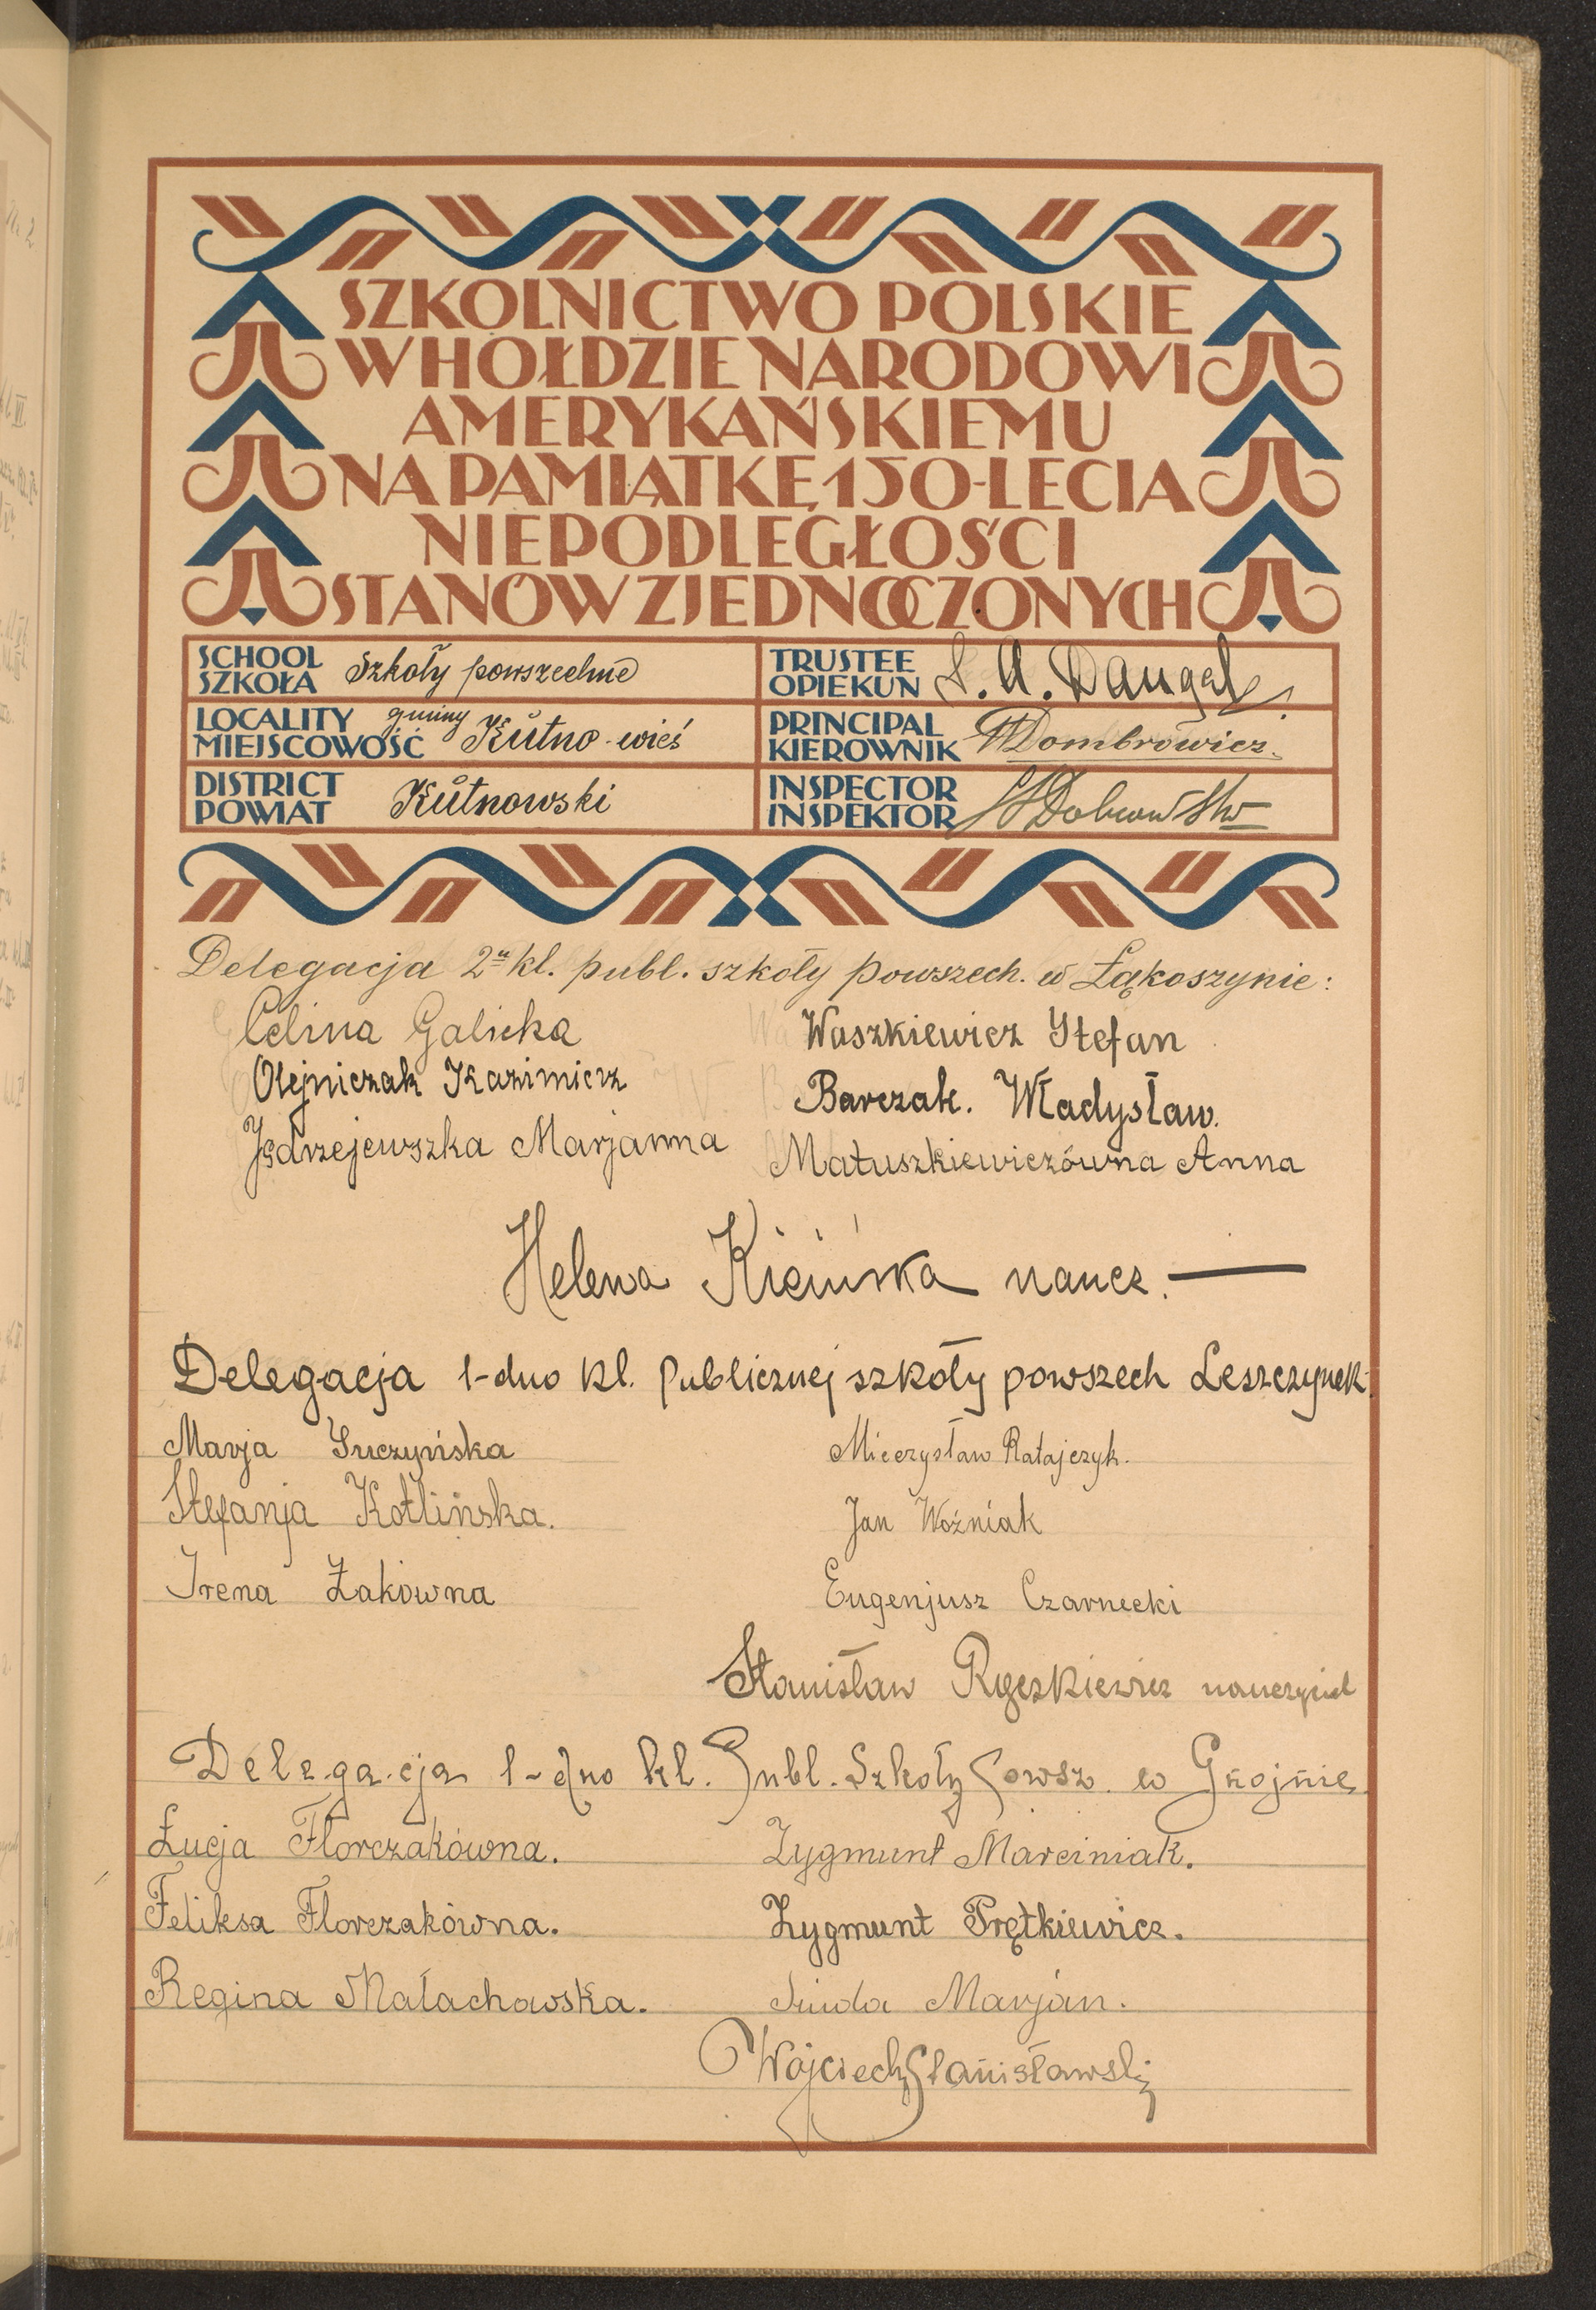 SZKOLNICTWO POLSKIE
W HOŁDZIE NARODOWI
AMERYKAŃSKIEMU
NA PAMIĄTKĘ 150-LECIA
NIEPODLEGŁOŚCI
STANÓW ZJEDNOCZONYCH
SCHOOL
SZKOŁA Szkoły powszechne
LOCALITY
MIEJSCOWOŚĆ gminy Kutno-wieś
DISTRICT
POWIAT Kutnowski
TRUSTEE
OPIEKUN
PRINCIPAL
KIEROWNIK WDombrowicz.
INSPECTOR
INSPEKTOR
Delegacja 2u kl. publ. szkoły powszech. w Łąkoszynie:
Celina Galicka
Waszkiewicz Stefan
Olejniczak Kazimierz
Barczak. Władysław.
Jędrzejewszka Marjanna
Matuszkiewiczówna Anna
Helena Kicińska naucz.
Delegacja 1-dno kl. Publicznej szkoły powszech Leszczynek
Marja
Mieczysław Ratajczyk.
Stefanja Kotlińska.
Jan Woźniak
Irena Żakówna
Eugenjusz Czarnecki
Stanisław nauczyciel
Delegacja 1-dno kl. Publ. Szkoły Powsz. w Gnojnie
Łucja Florczakówna.
Zygmunt Marciniak.
Feliksa Florczakówna.
Zygmunt Prętkiewicz.
Regina Małachowska.
Marjan.
Wojciech Stanisławski